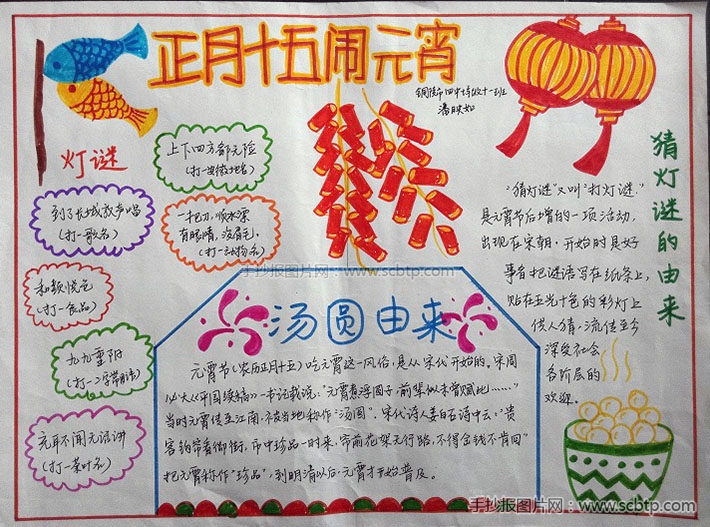 正月十五闹元宵
潘映如
灯谜
上下四方都无险
(打一安徽地名)
到了长城放声唱
(打一歌名)
一把刀,顺水漂
有眼睛,没眉毛,
(打一动物名)
和颜悦色
(打一食品)
九九重阳
充耳不闻无话讲
(打一茶叶名)
猜灯谜的由来
“猜灯谜”又叫“打灯谜”
是元宵节后增的一项活动,
出现在宋朝。开始时是好
事者把谜语写在纸条上,
贴在五光十色的彩灯上
供人猜,流传至今
深受社会
各阶层的
欢迎。
汤圆由来
元宵节(农历正月十五)吃元宵这一风俗,是从宋代开始的。宋周
必大《平园续稿》一书记载说:“元宵煮浮圆子,前辈似未曾赋此……”
当时元宵传至江南,被当地称作“汤圆”。宋代诗人姜白石诗中云:“贵
客钩帘看御街,市中珍品一时来,帘前花架无行路,不得金钱不肯回”
把元宵称作“珍品”,到明清以后,元宵才开始普及。
手抄报图片网 www.scbtp.com
手抄报图片网:www.scbtp.com